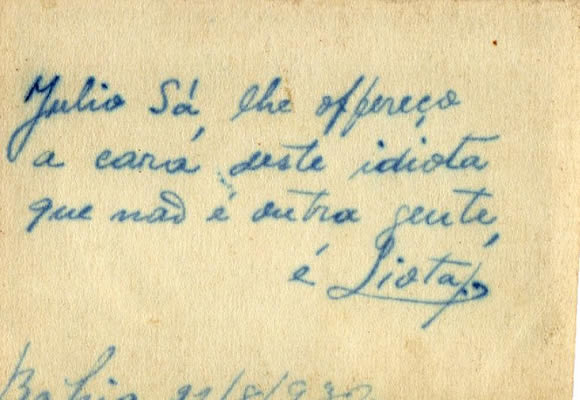 Julio Sá, lhe offereço
a cara deste idiota
que não é outra gente,
é Liota.
Bahia